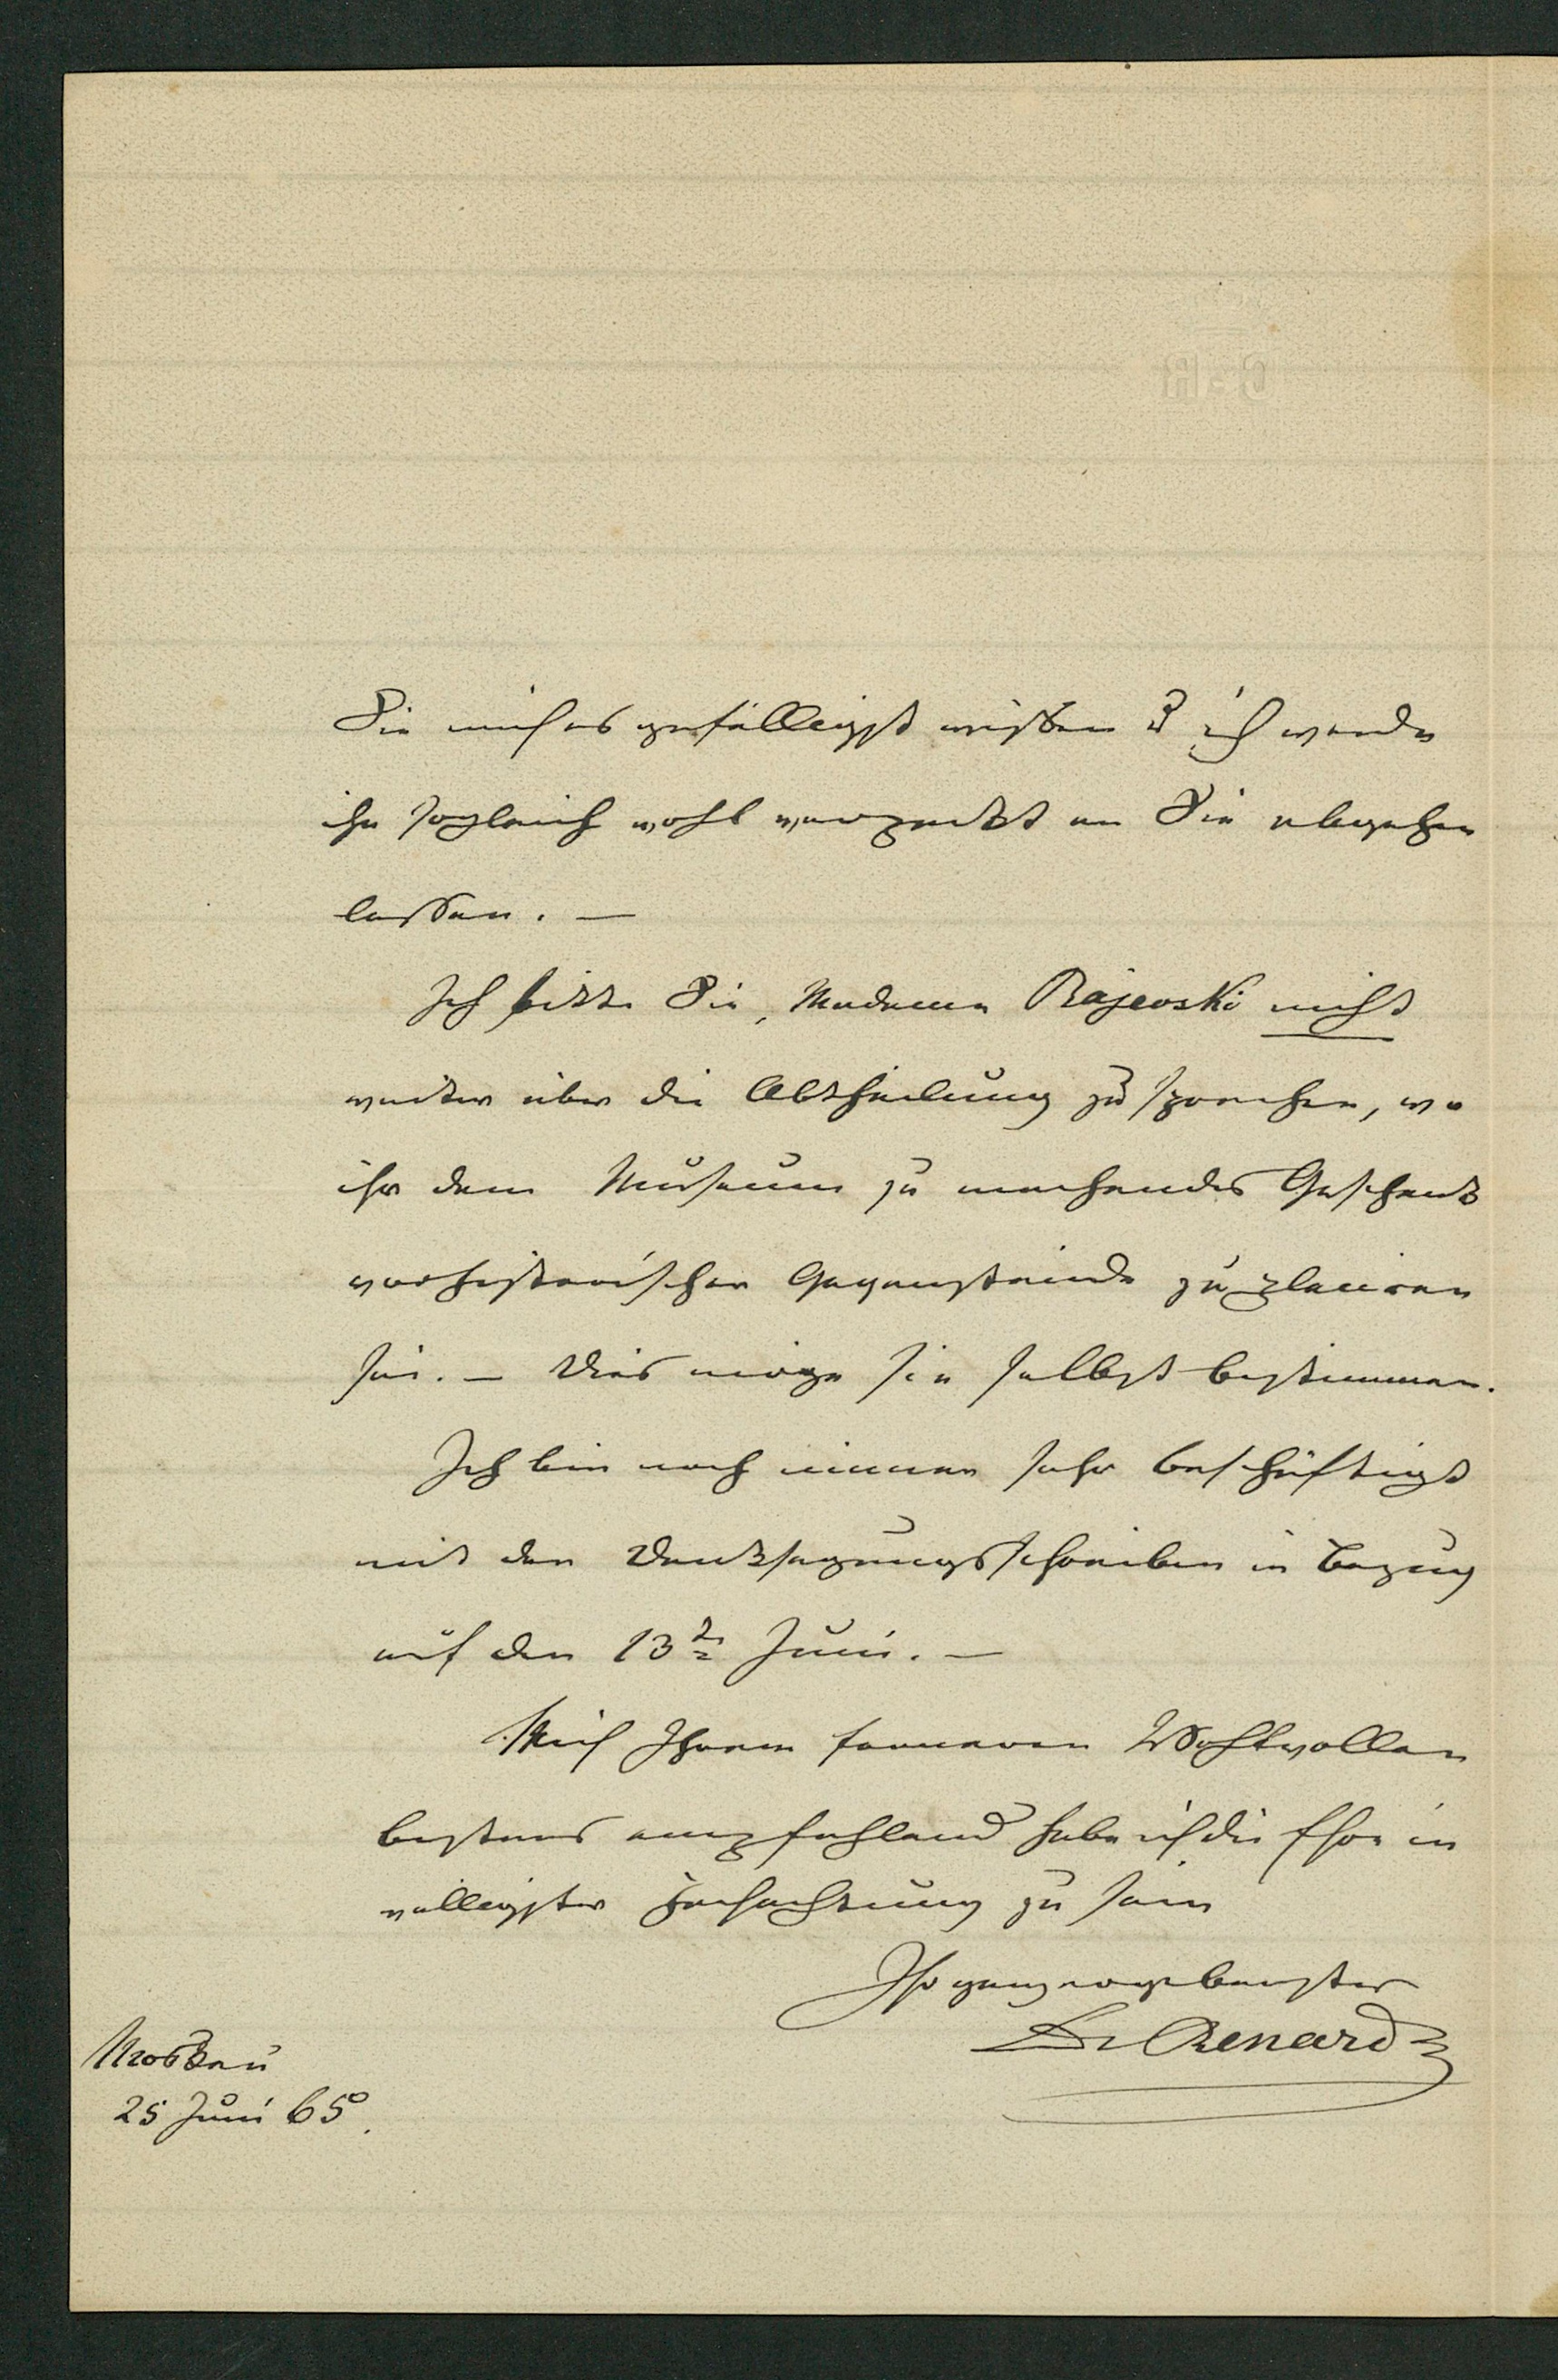 Sie mich es gefälligst wissen u ich werde
ihn sogleich wohl verpackt an Sie abgehen
lassen. —
Ich bitte Sie, Madame Rajevski nicht
weiter über die Abtheilung zu sprechen, wo
ihr dem Museum zu machendes Geschenk
vorhistorischer Gegenstände zu placiren
sei. — Dies möge sie selbst bestimmen.
Ich bin noch immer sehr beschäftigt
mit den Danksagungsschreiben in Bezug
auf den 13ten Juni. —
Mich Ihrem ferneren Wohlwollen
bestens empfehlend habe ich die Ehre in
völligster Hochachtung zu sein
Ihr ganz ergebenster
Dr Renard
Moskau
25 Juni 65.